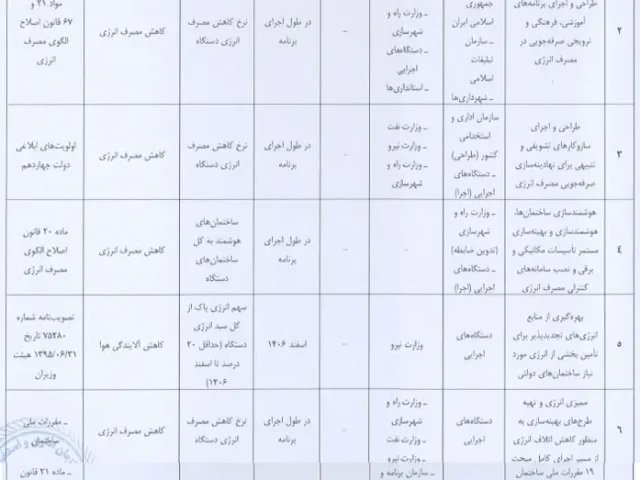 ۲
طراحی و اجرای برنامه‌های
آموزشی، فرهنگی و
ترویجی صرفه‌جویی در
مصرف انرژی
جمهوری
اسلامی ایران
ـ سازمان
تبلیغات
اسلامی
ـ شهرداری‌ها
ـ وزارت راه و
شهرسازی
ـ دستگاه‌های
اجرایی
ـ استانداری‌ها
-
در طول اجرای
برنامه
نرخ کاهش مصرف
انرژی دستگاه
کاهش مصرف انرژی
مواد ۲۱ و
۶۷ قانون اصلاح
الگوی مصرف
انرژی
۳
طراحی و اجرای
سازوکارهای تشویقی و
تنبیهی برای نهادینه‌سازی
صرفه‌جویی مصرف انرژی
سازمان اداری و
استخدامی
کشور (طراحی)
ـ دستگاه‌های
اجرایی (اجرا)
ـ وزارت نفت
ـ وزارت نیرو
ـ وزارت راه و
شهرسازی
-
در طول اجرای
برنامه
نرخ کاهش مصرف
انرژی دستگاه
کاهش مصرف انرژی
اولویت‌های ابلاغی
دولت چهاردهم
۴
هوشمندسازی ساختمان‌ها،
هوشمندسازی و بهینه‌سازی
مستمر تاسیسات مکانیکی و
برقی و نصب سامانه‌های
کنترلی مصرف انرژی
ـ وزارت راه و
شهرسازی
(تدوین ضابطه)
ـ دستگاه‌های
اجرایی (اجرا)
-
-
در طول اجرای
برنامه
ساختمان‌های
هوشمند به کل
ساختمان‌های
دستگاه
کاهش مصرف انرژی
ماده ۲۰ قانون
اصلاح الگوی
مصرف انرژی
۵
بهره‌گیری از منابع
انرژی‌های تجدیدپذیر برای
تأمین بخشی از انرژی مورد
نیاز ساختمان‌های دولتی
دستگاه‌های
اجرایی
وزارت نیرو
-
اسفند ۱۴۰۶
سهم انرژی پاک از
کل سبد انرژی
دستگاه (حداقل ۲۰
درصد تا اسفند
۱۴۰۶)
کاهش آلایندگی هوا
تصویب‌نامه شماره
۷۵۲۸۰ تاریخ
۱۳۹۵/۰۶/۲۱ هیئت
وزیران
۶
ممیزی انرژی و تهیه
طرح‌های بهینه‌سازی به
منظور کاهش اتلاف انرژی
از مسیر اجرای کامل مبحث
۱۹ مقررات ملی ساختمان
دستگاه‌های
اجرایی
ـ وزارت راه و
شهرسازی
ـ وزارت نفت
ـ وزارت نیرو
ـ سازمان برنامه و
-
در طول اجرای
برنامه
نرخ کاهش مصرف
انرژی دستگاه
کاهش مصرف انرژی
ـ مقررات ملی
ساختمان
ـ ماده ۲۱ قانون